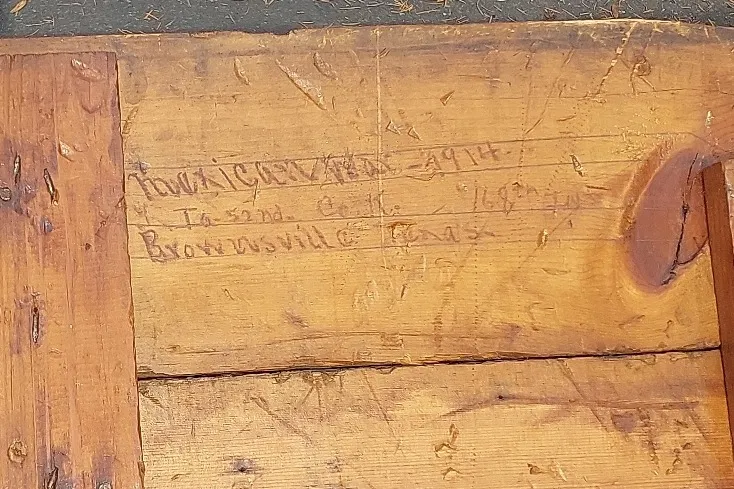 Mexican War - 1914.
Ia. 52nd. Co. 168th Inf
Brownsville Texas